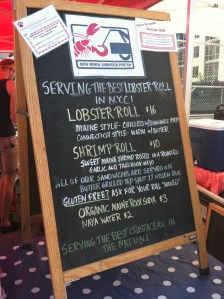 RED HOOK LOBSTER POUND
SERVING THE BEST LOBSTER ROLL
IN NYC!
LOBSTER ROLL $16
MAINE STYLE - CHILLED w/ HOMEMADE MAYO
CONNECTICUT STYLE - WARM w/ BUTTER
SHRIMP ROLL $10
SWEET MAINE SHRIMP TOSSED IN A ROASTED
GARLIC AND TARRAGON MAYO
ALL OF OUR SANDWICHES ARE SERVED ON
BUTTER GRILLED
GLUTEN FREE? ASK FOR YOUR ROLL "NAKED"
ORGANIC MAINE ROOT SODA $3
WATER $2
SERVING THE BEST CRUSTACEAN IN
THE NATION!